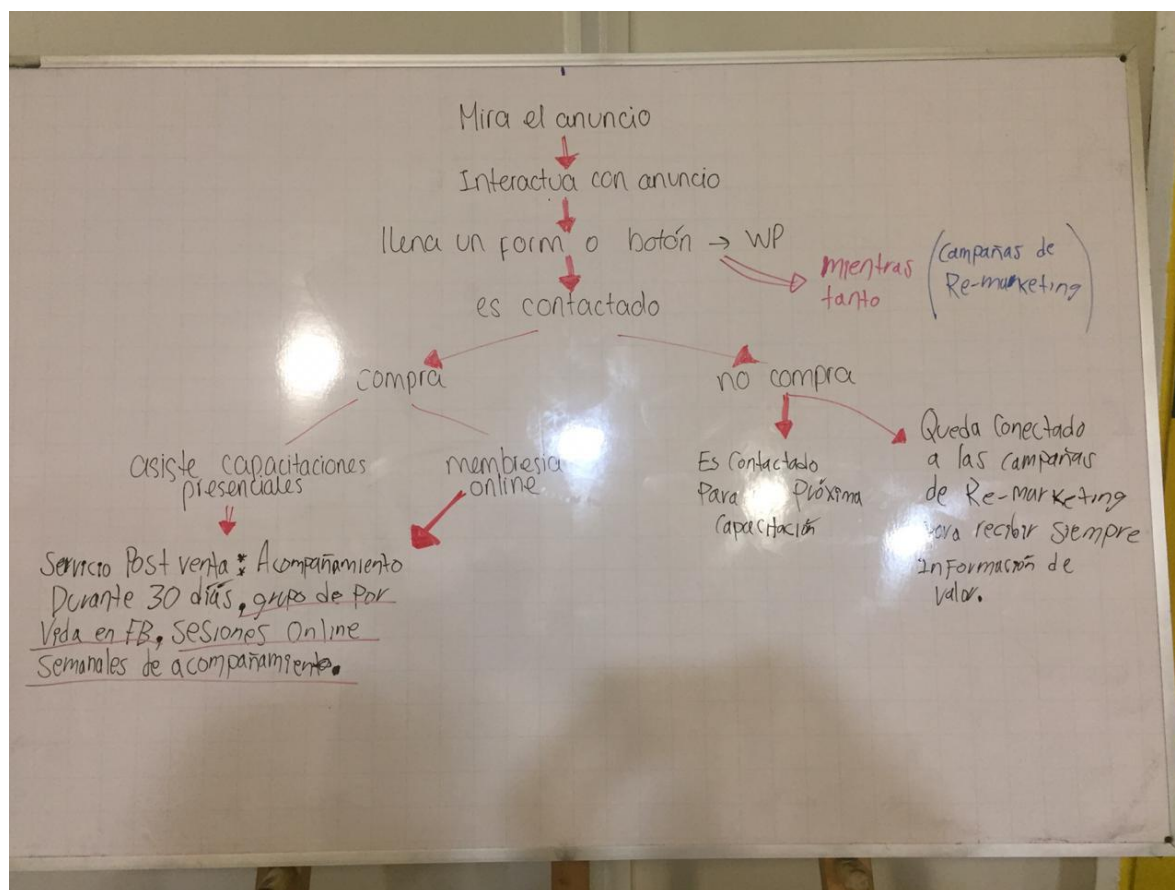 Mira el anuncio
Interactua con anuncio
llena un form o botón → WP
mientras
tanto
(Campañas de
Re-marketing)
es contactado
compra
no compra
asiste capacitaciones
presenciales
membresia
online
Es Contactado
Para Próxima
Capacitación
Queda Conectado
a las campañas
de Re-marketing
para recibir siempre
Información de
valor.
Servicio Post venta: Acompañamiento
Durante 30 días, grupo de por
Vida en FB, Sesiones Online
Semanales de acompañamiento.